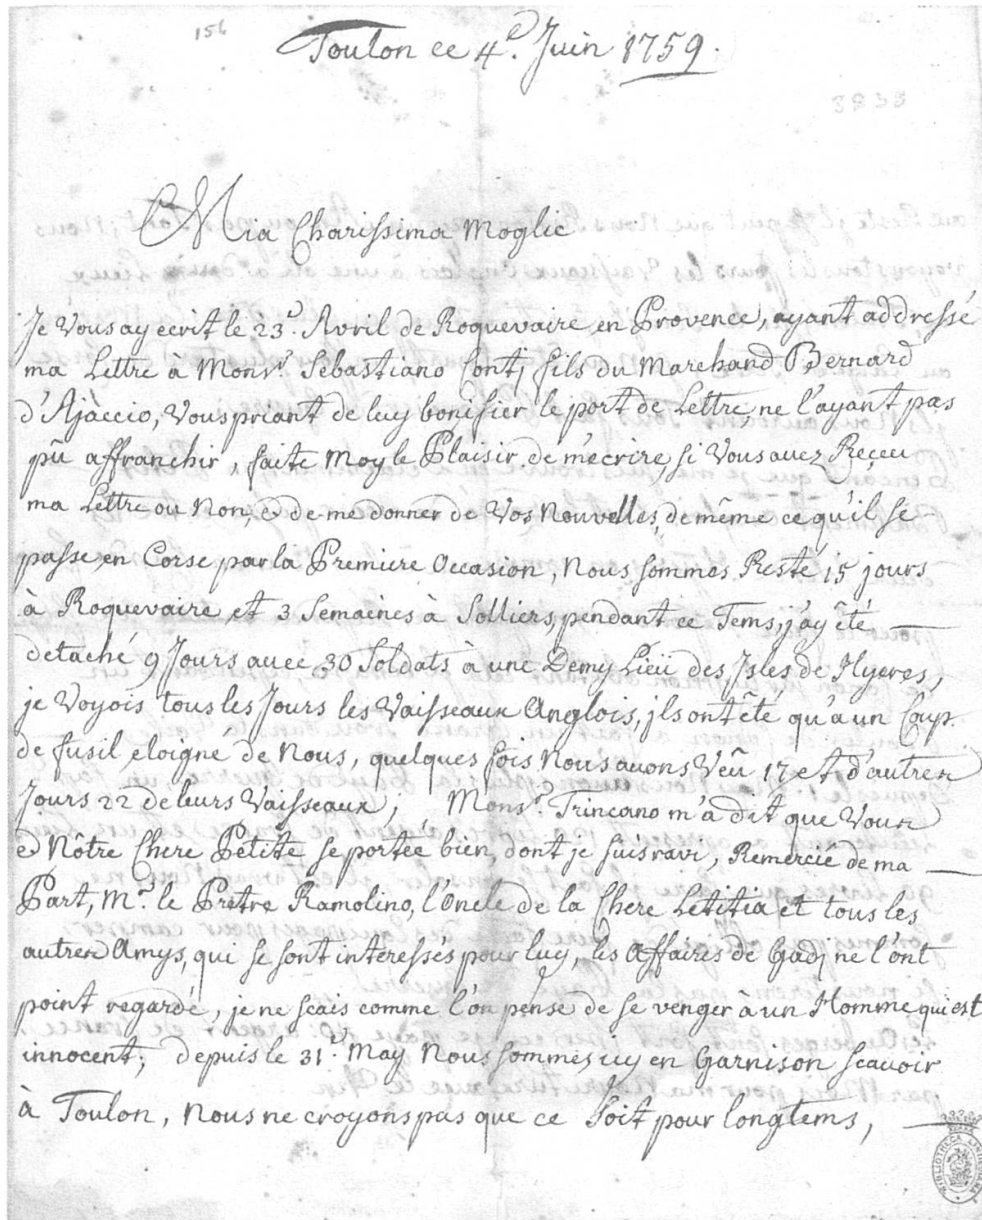 156
Toulon ce 4e. Juin 1759.
3838
Mia Charissima Moglie
Je Vous ay ecrit le 23e. Avril de Roquevaire en Provence, ayant addressé
ma Lettre à Monsr. Sebastiano Contj fils du Marchand Bernard
d'Ajaccio, Vous priant de luy bonifier le port de Lettre ne l'ayant pas
pû affranchir, faite Moy le Plaisir de m'écrire, si Vous avez Reçeu
ma Lettre ou Non, & de me donner de Vos Nouvelles, de même ce qu'il se
passe en Corse par la Premiere Occasion, Nous sommes Resté 15 jours
à Roquevaire et 3 Semaines à Solliers, pendant ce Tems, j'ay êté
detaché 9 Jours avec 30 Soldats à une Demy Lieü des Isles de Hyeres,
je Voyois tous les Jours les Vaisseaux Anglois, jls ont êté qu'à un Coup
de fusil eloigne de Nous, quelques fois Nous avons Vêu 17 et d'autres
Jours 22 de leurs Vaisseaux; Monsr. Trincano m'a dit que Vous
& Nôtre Chere Petite se portée bien, dont je suis ravi, Remercie de ma
Part, Mr. le Prêtre Ramolino, l'Oncle de la Chere Letitia et tous les
autres Amys, qui se sont interessés pour luy, les Affaires de Gadj ne l'ont
point regardé, je ne scais comme l'on pense de se venger a un Homme qui est
innocent; depuis le 31e. May Nous sommes icy en Garnison scavoir
à Toulon, Nous ne croyons pas que ce Soit pour longtems,
BIBLIOTHECA LINDESIANA